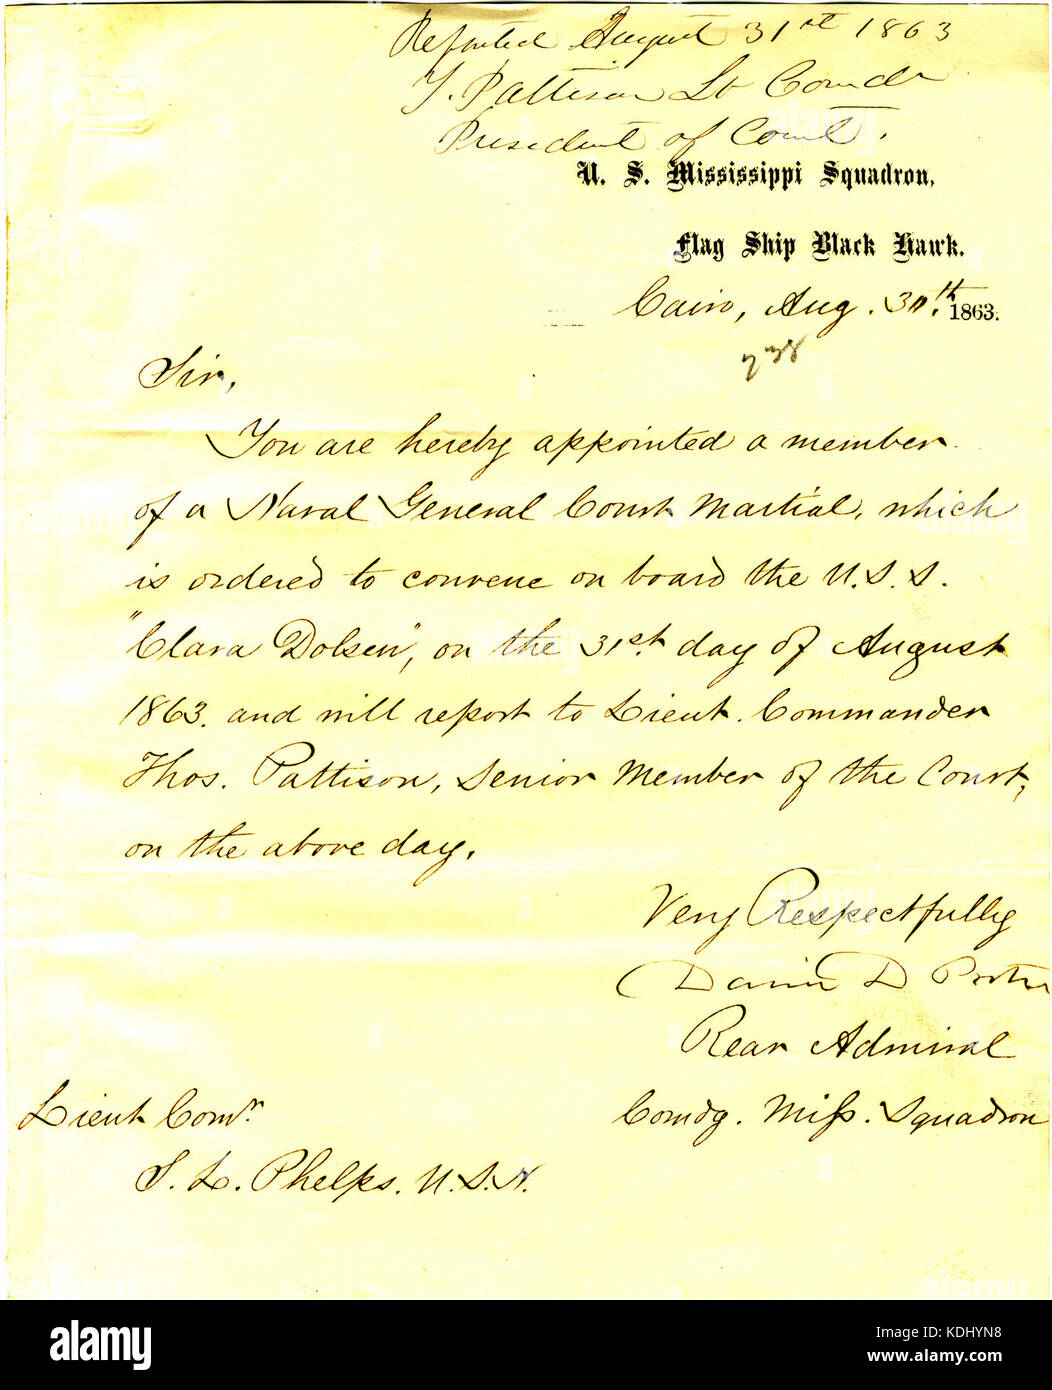 Reported August 31st 1863
T. Pattison Lt Comdr
President of Court.
U. S. Mississippi Squadron,
Flag Ship Black Hawk.
Cairo, Aug. 30th 1863.
Sir,
You are hereby appointed a member
of a Naval General Court Martial, which
is ordered to convene on board the U.S.S.
"Clara Dolsen", on the 31st day of August
1863. and will report to Lieut. Commander
Thos. Pattison, Senior Member of the Court,
on the above day.
Very Respectfully
David D Porter
Rear Admiral
Comdg. Miss. Squadron
Lieut Comr.
S. L. Phelps. U.S.N.
alamy
Image ID: KDHYN8
www.alamy.com